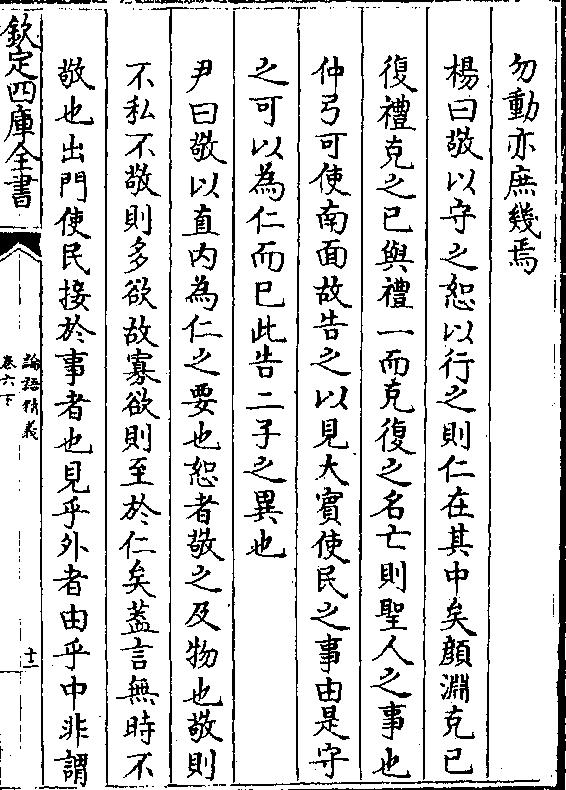 勿動亦庶幾焉
楊曰敬以守之恕以行之則仁在其中矣顔淵克已
復禮克之已與禮一而克復之名亡則聖人之事也
仲弓可使南面故告之以見大賓使民之事由是守
之可以為仁而已此告二子之異也
尹曰敬以直内為仁之要也恕者敬之及物也敬則
不私不敬則多欲故寡欲則至於仁矣葢言無時不
敬也出門使民接於事者也見乎外者由乎中非謂
欽定四庫全書
論語精義
卷六下
十二